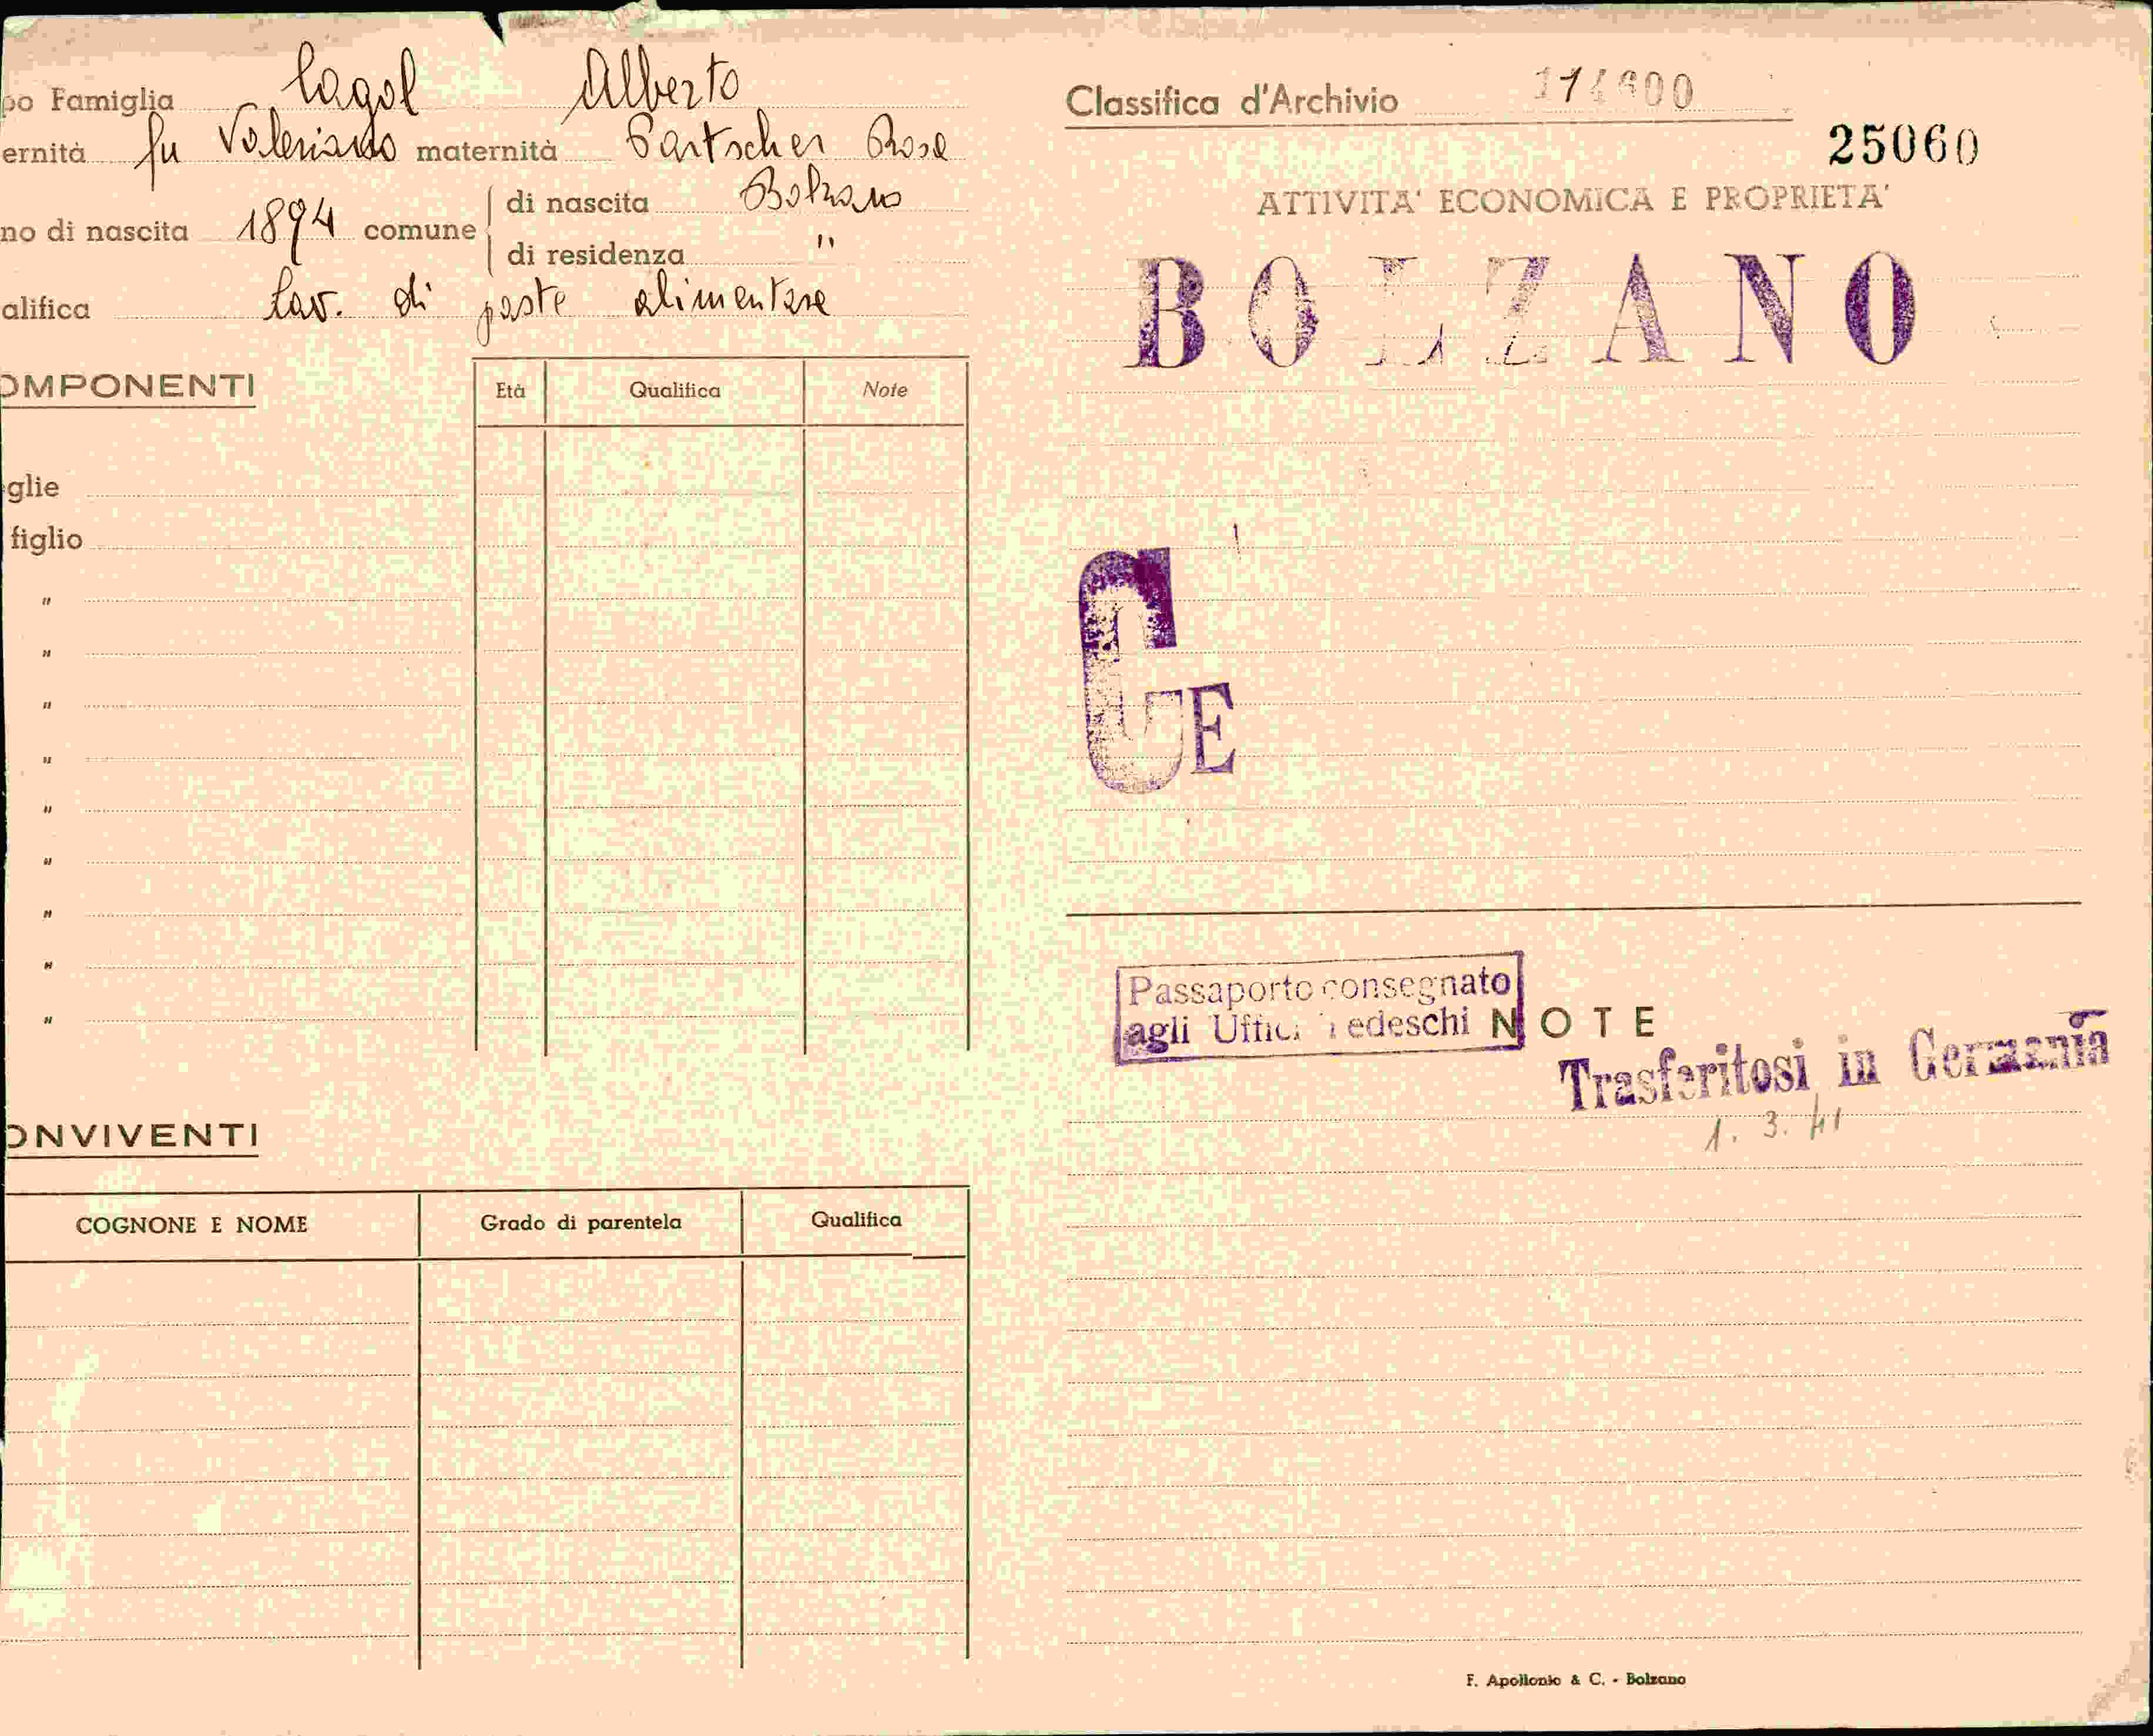 po Famiglia Cagol Alberto
ernità fu Valeriano maternità Partscher Rosa
no di nascita 1894 comune
di nascita Bolzano
di residenza "
alifica lav. di paste alimentare
OMPONENTI
Età Qualifica Note
glie
figlio
"
"
"
"
"
"
"
"
"
ONVIVENTI
COGNONE E NOME Grado di parentela Qualifica
Classifica d'Archivio
25060
ATTIVITA' ECONOMICA E PROPRIETA'
BOLZANO
C
E
Passaporto consegnato
agli Uffici Tedeschi
NOTE
Trasferitosi in Germania
1. 3. 41
F. Apollonio & C. - Bolzano